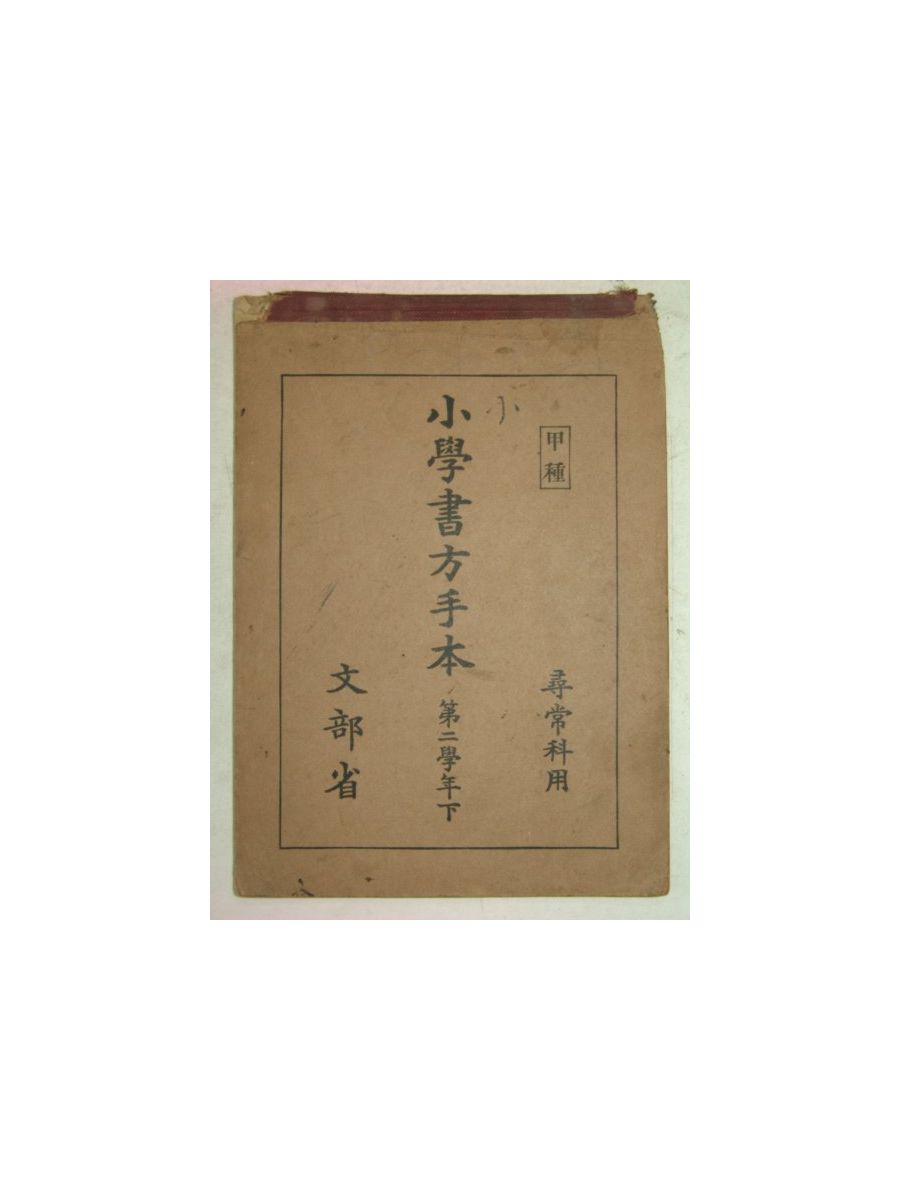 甲種
尋常科用
小
小學書方手本 第二學年下
文部省